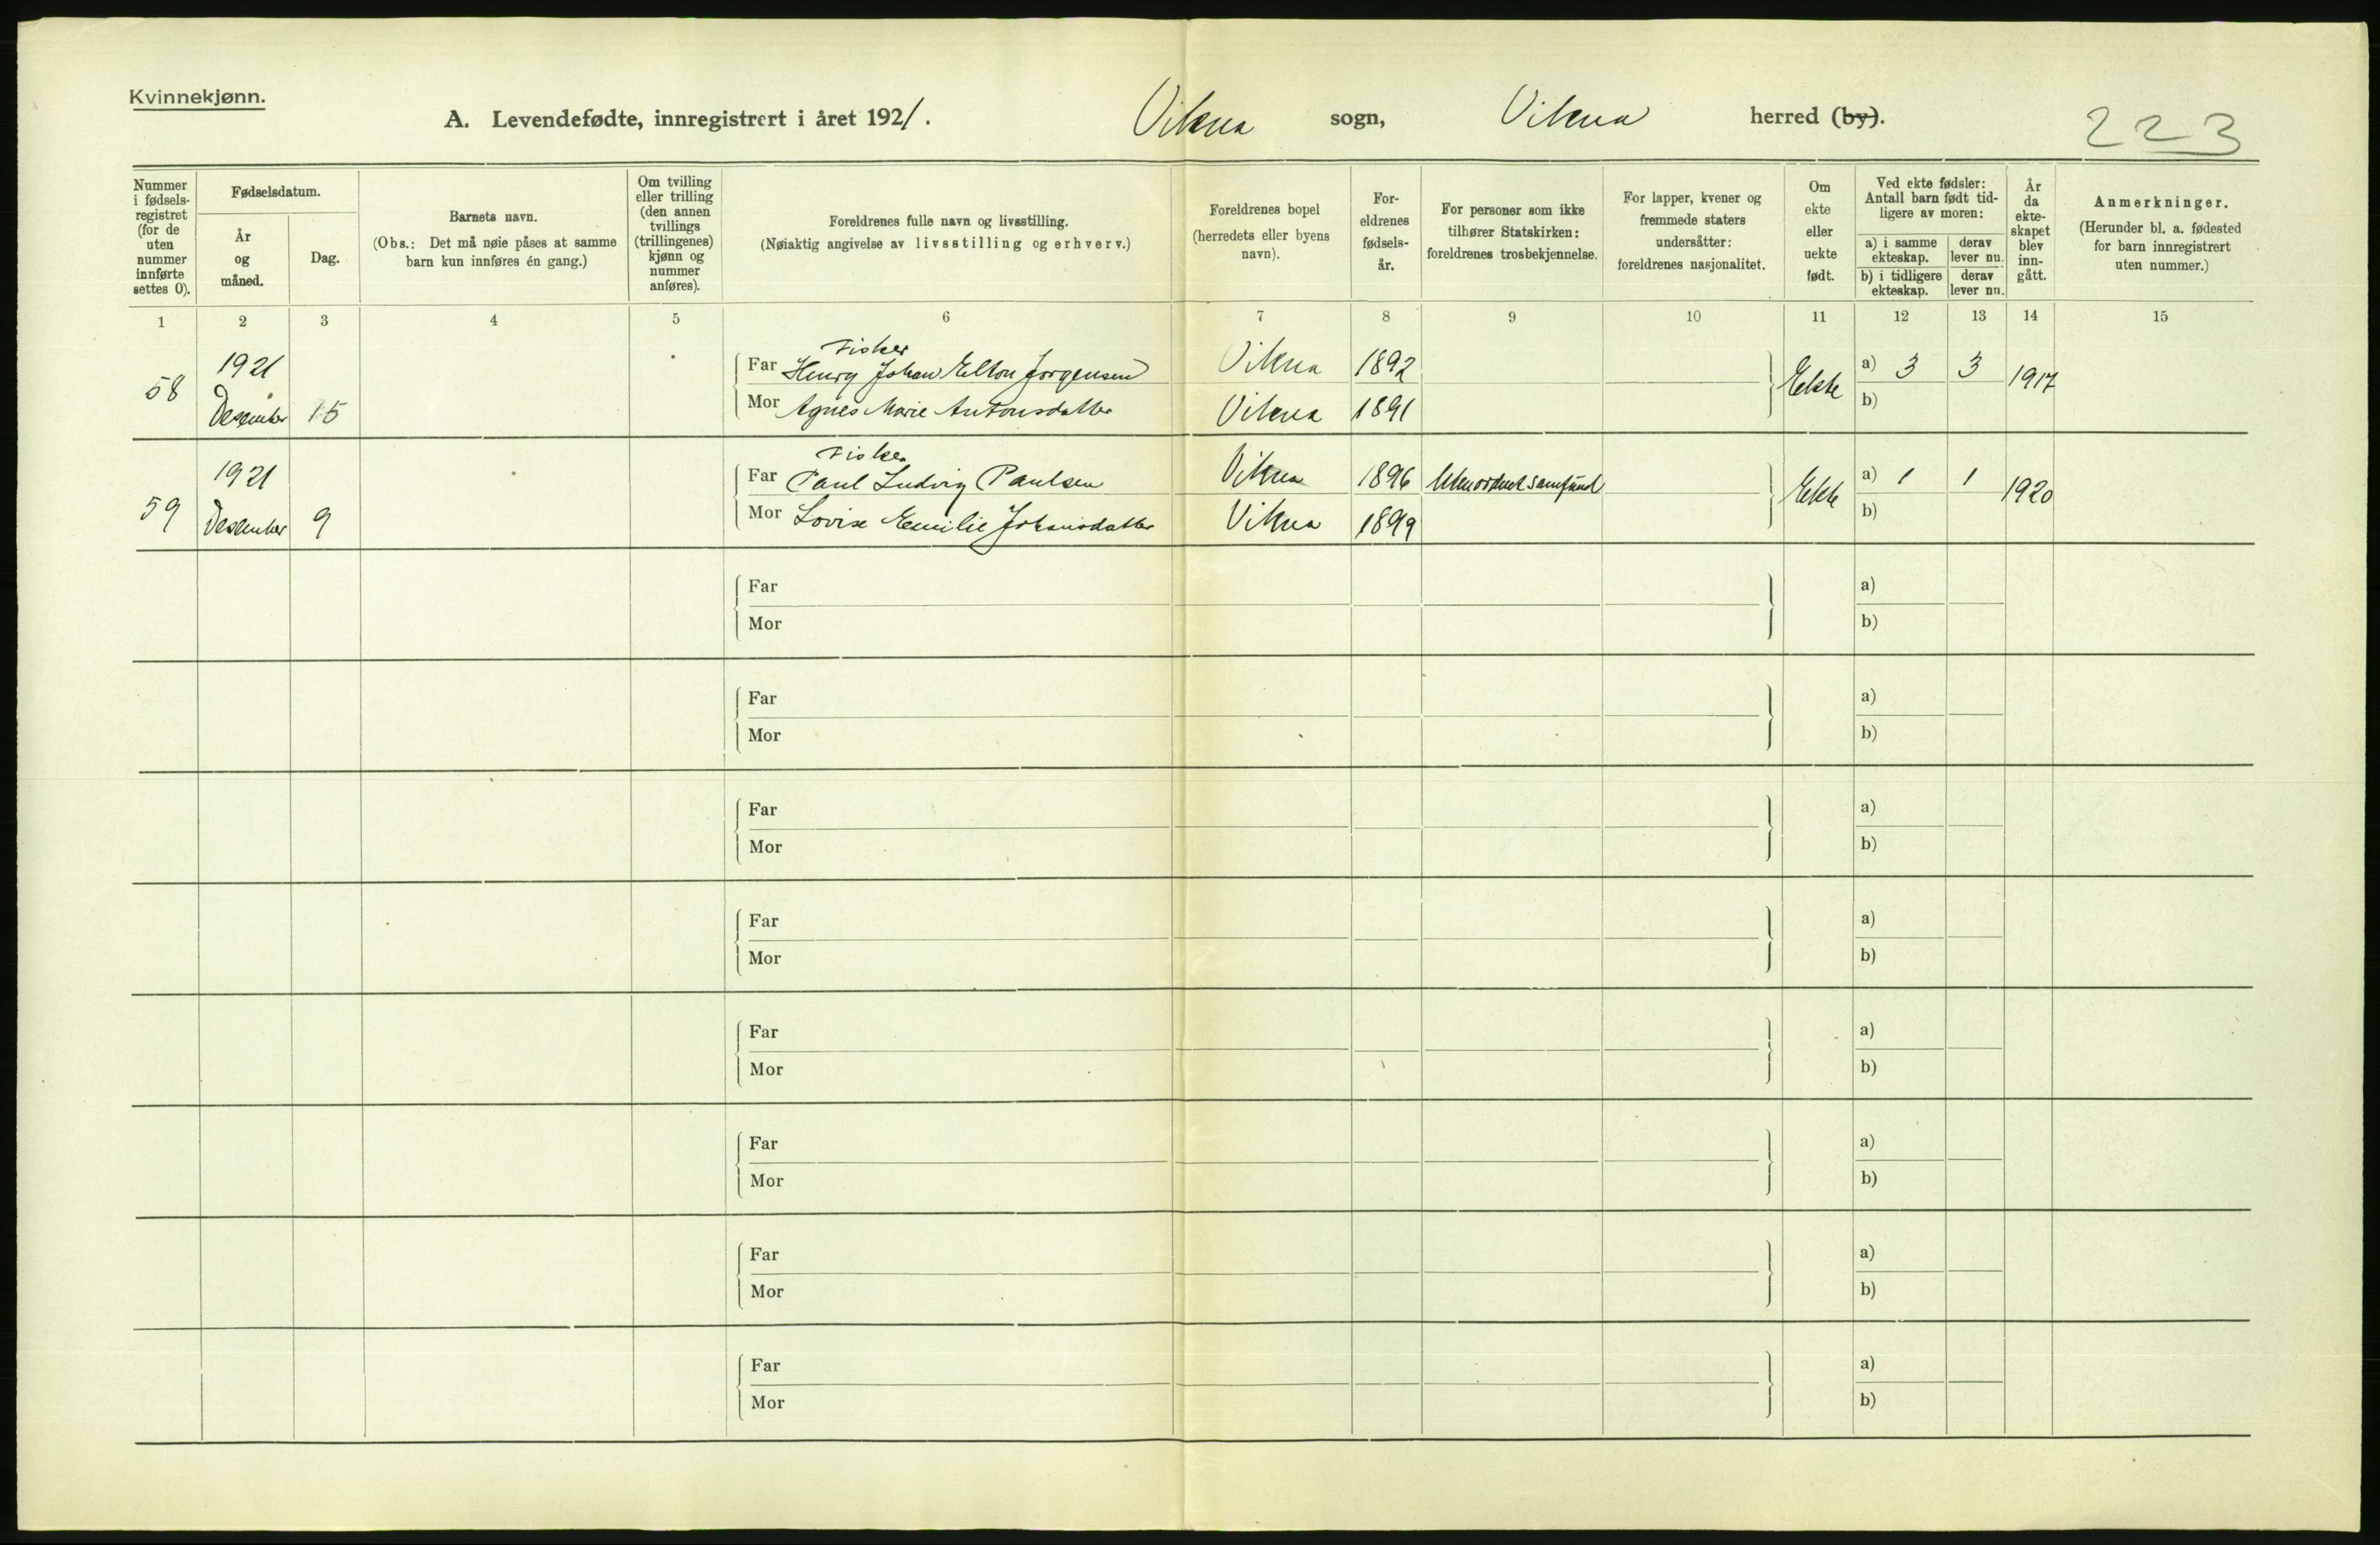 Kvinnekjønn.
A. Levendefødte, innregistrert i året 1921. Vikna sogn, Vikna herred (by).
223
Nummer i fødsels-registret (for de uten nummer innførte settes 0).
Fødselsdatum.
År og måned.
Dag.
Barnets navn.
(Obs.: Det må nøie påses at samme barn kun innføres én gang.)
Om tvilling eller trilling (den annen tvillings (trillingenes) kjønn og nummer anføres).
Foreldrenes fulle navn og livsstilling.
(Nøiaktig angivelse av livsstilling og erhverv.)
Foreldrenes bopel (herredets eller byens navn).
For-eldrenes fødsels-år.
For personer som ikke tilhører Statskirken: foreldrenes trosbekjennelse.
For lapper, kvener og fremmede staters undersåtter: foreldrenes nasjonalitet.
Om ekte eller uekte født.
Ved ekte fødsler: Antall barn født tid-ligere av moren:
a) i samme ekteskap.
derav lever nu.
b) i tidligere ekteskap.
derav lever nu.
År da ekte-skapet blev inn-gått.
Anmerkninger.
(Herunder bl. a. fødested for barn innregistrert uten nummer.)
1 2 3 4 5 6 7 8 9 10 11 12 13 14 15
Fisker
58 1921 Far Henry Johan Elton Jørgensen Vikna 1892 Ekte a) 3 3 1917
Desember 15 Mor Agnes Marie Antonsdatter Vikna 1891 b)
Fisker
59 1921 Far Paul Ludvig Paulsen Vikna 1896 Utenordnet samfund Ekte a) 1 1 1920
Desember 9 Mor Lovise Emilie Johansdatter Vikna 1899 b)
Far a)
Mor b)
Far a)
Mor b)
Far a)
Mor b)
Far a)
Mor b)
Far a)
Mor b)
Far a)
Mor b)
Far a)
Mor b)
Far a)
Mor b)